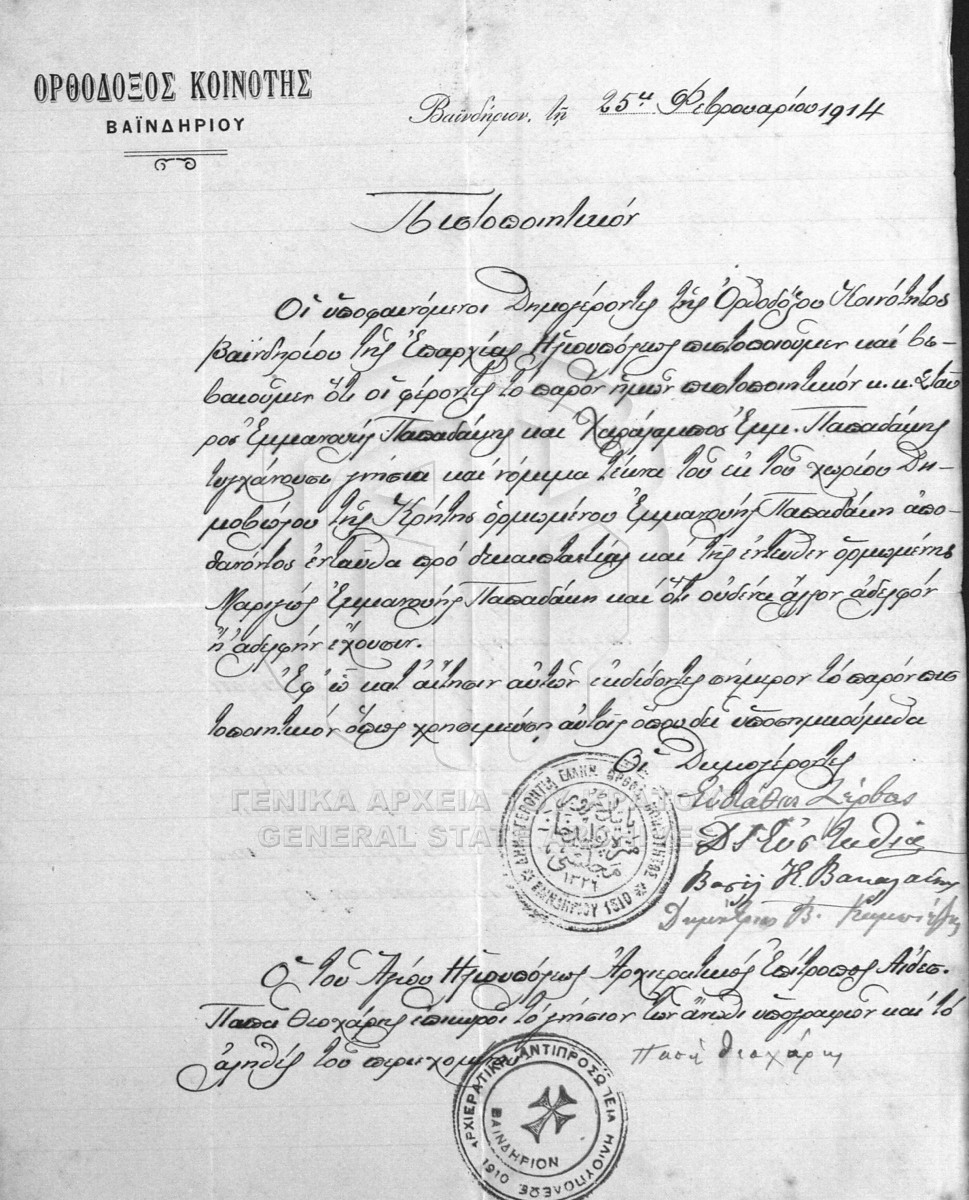 ΟΡΘΟΔΟΞΟΣ ΚΟΙΝΟΤΗΣ
ΒΑΪΝΔΗΡΙΟΥ
Βαϊνδήριον, τῇ 25ῃ Φεβρουαρίου 1914
Πιστοποιητικόν
Οἱ ὑποφαινόμενοι Δημογέροντες τῆς Ὀρθοδόξου Κοινότητος
Βαϊνδηρίου τῆς Ἐπαρχίας Ἡλιουπόλεως πιστοποιοῦμεν καὶ βε-
βαιοῦμεν ὅτι οἱ φέροντες τὸ παρὸν ἡμῶν πιστοποιητικὸν κ.κ. Σταῦ
ρος Ἐμμανουὴλ Παπαδάκης καὶ Χαράλαμπος Ἐμμ. Παπαδάκης
τυγχάνουσι γνήσια καὶ νόμιμα τέκνα τοῦ ἐκ τοῦ χωρίου
τῆς Κρήτης ὁρμωμένου Ἐμμανουὴλ Παπαδάκη ἀπο-
θανόντος ἐνταῦθα πρὸ δεκαεπταετίας καὶ τῆς ἐντεῦθεν ὁρμωμένης
Μαριγῶς Ἐμμανουὴλ Παπαδάκη καὶ ὅτι οὐδένα ἄλλον ἀδελφόν
ἢ ἀδελφὴν ἔχουσιν.
Ἐφ' ᾧ κατ' αἴτησιν αὐτῶν ἐκδίδοντες σήμερον τὸ παρὸν πισ
τοποιητικὸν ὅπως χρησιμεύσῃ αὐτοῖς ὅπου δεῖ ὑποσημειούμεθα
Οἱ Δημογέροντες
Εὐστάθιος Ζέρβας
Βασίλ Κ.
Δημήτριος Β.
ΔΗΜΟΓΕΡΟΝΤΙΑ ΕΛΛΗΝ. ΟΡΘΟΔ. ΚΟΙΝΟΤΗΤΑΣ
ΒΑΪΝΔΗΡΙΟΥ 1910
١٣٢٦
ΓΕΝΙΚΑ ΑΡΧΕΙΑ ΤΟΥ ΚΡΑΤΟΥΣ
GENERAL STATE ARCHIVES
Ὁ τοῦ Ἁγίου Ἡλιουπόλεως Ἀρχιερατικὸς Ἐπίτροπος Αἰδεσ.
Παπᾶ Θεοχάρης ἐπικυροῖ τὸ γνήσιον τῶν ἄνωθι ὑπογραφῶν καὶ τὸ
ἀληθὲς τοῦ περιεχομένου
Παπᾶ Θεοχάρης
ΑΡΧΙΕΡΑΤΙΚΗ ΑΝΤΙΠΡΟΣΩΠΕΙΑ ΗΛΙΟΥΠΟΛΕΩΣ 1910
ΒΑΙΝΔΗΡΙΟΝ